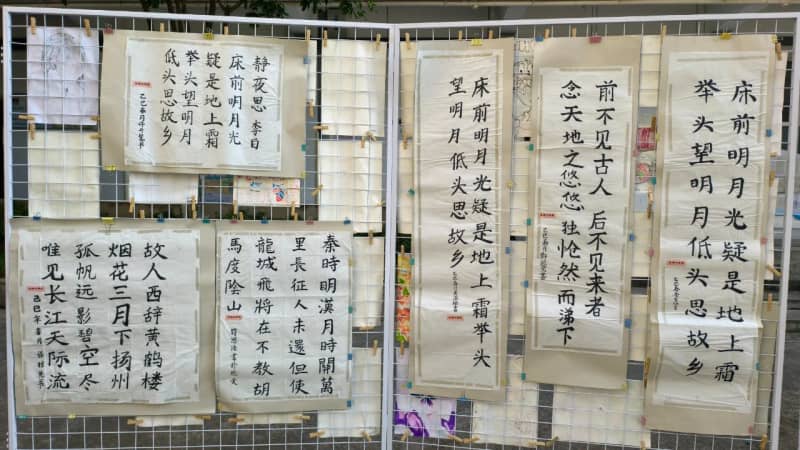 静夜思 李白
床前明月光
疑是地上霜
举头望明月
低头思故乡
故人西辞黄鹤楼
烟花三月下扬州
孤帆远影碧空尽
唯见长江天际流
秦時明漢月時關萬
里長征人未還但使
龍城飛將在不教胡
馬度陰山
床前明月光疑是地上霜举头
望明月低头思故乡
前不见古人 后不见来者
念天地之悠悠 独怆然而涕下
床前明月光疑是地上霜
举头望明月低头思故乡